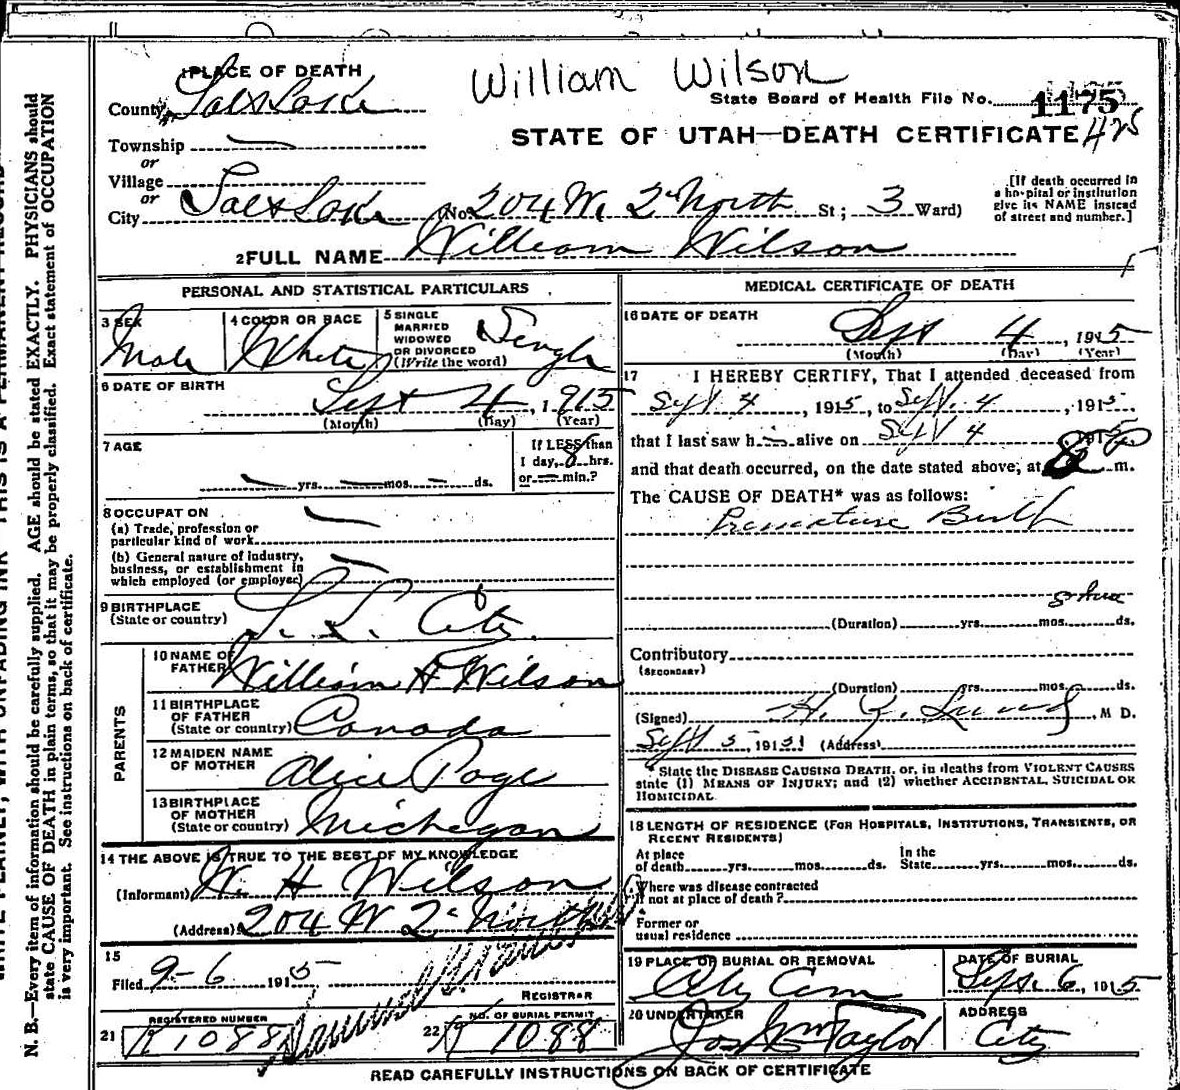 William Wilson
1 PLACE OF DEATH
County Salt Lake
State Board of Health File No. 1175
425
Township —
STATE OF UTAH—DEATH CERTIFICATE
or
Village
or
City Salt Lake (No. 204 W. 2nd North St; 3 Ward)
[If death occurred in
a hospital or institution
give its NAME instead
of street and number.]
2 FULL NAME William Wilson
PERSONAL AND STATISTICAL PARTICULARS
3 SEX Male
4 COLOR OR RACE White
5 SINGLE
MARRIED
WIDOWED
OR DIVORCED
(Write the word) Single
6 DATE OF BIRTH
Sept 4, 1915
(Month) (Day) (Year)
7 AGE
— yrs. — mos. — ds.
If LESS than
1 day, 8 hrs.
or — min.?
8 OCCUPATION
(a) Trade, profession or
particular kind of work —
(b) General nature of industry,
business, or establishment in
which employed (or employer) —
9 BIRTHPLACE
(State or country) S. L. City
PARENTS
10 NAME OF
FATHER William H Wilson
11 BIRTHPLACE
OF FATHER
(State or country) Canada
12 MAIDEN NAME
OF MOTHER Alice Page
13 BIRTHPLACE
OF MOTHER
(State or country) Michegan
14 THE ABOVE IS TRUE TO THE BEST OF MY KNOWLEDGE
(Informant) W. H Wilson
(Address) 204 W 2nd North
15
Filed 9-6 1915
REGISTRAR
21 REGISTERED NUMBER K1088
22 NO. OF BURIAL PERMIT K1088
MEDICAL CERTIFICATE OF DEATH
16 DATE OF DEATH
Sept 4, 1915
(Month) (Day) (Year)
17 I HEREBY CERTIFY, That I attended deceased from
Sept 4, 1915, to Sept. 4, 1915.
that I last saw h alive on Sept 4 1915
and that death occurred, on the date stated above, at 8 P m.
The CAUSE OF DEATH* was as follows:
Premature Birth
8 hrs
(Duration) yrs. mos. ds.
Contributory
(SECONDARY)
(Duration) yrs. mos. ds.
(Signed) M D.
Sept 5, 1915 (Address)
* State the DISEASE CAUSING DEATH, or, in deaths from VIOLENT CAUSES
state (1) MEANS OF INJURY; and (2) whether ACCIDENTAL, SUICIDAL OR
HOMICIDAL.
18 LENGTH OF RESIDENCE (FOR HOSPITALS, INSTITUTIONS, TRANSIENTS, OR
RECENT RESIDENTS)
At place
of death yrs. mos. ds.
In the
State yrs. mos. ds.
Where was disease contracted
if not at place of death?
Former or
usual residence
19 PLACE OF BURIAL OR REMOVAL
City Cem
DATE OF BURIAL
Sept. 6, 1915
20 UNDERTAKER
Jos Wm Taylor
ADDRESS
City
READ CAREFULLY INSTRUCTIONS ON BACK OF CERTIFICATE
N. B.—Every item of information should be carefully supplied. AGE should be stated EXACTLY. PHYSICIANS should
state CAUSE OF DEATH in plain terms, so that it may be properly classified. Exact statement of OCCUPATION
is very important. See instructions on back of certificate.